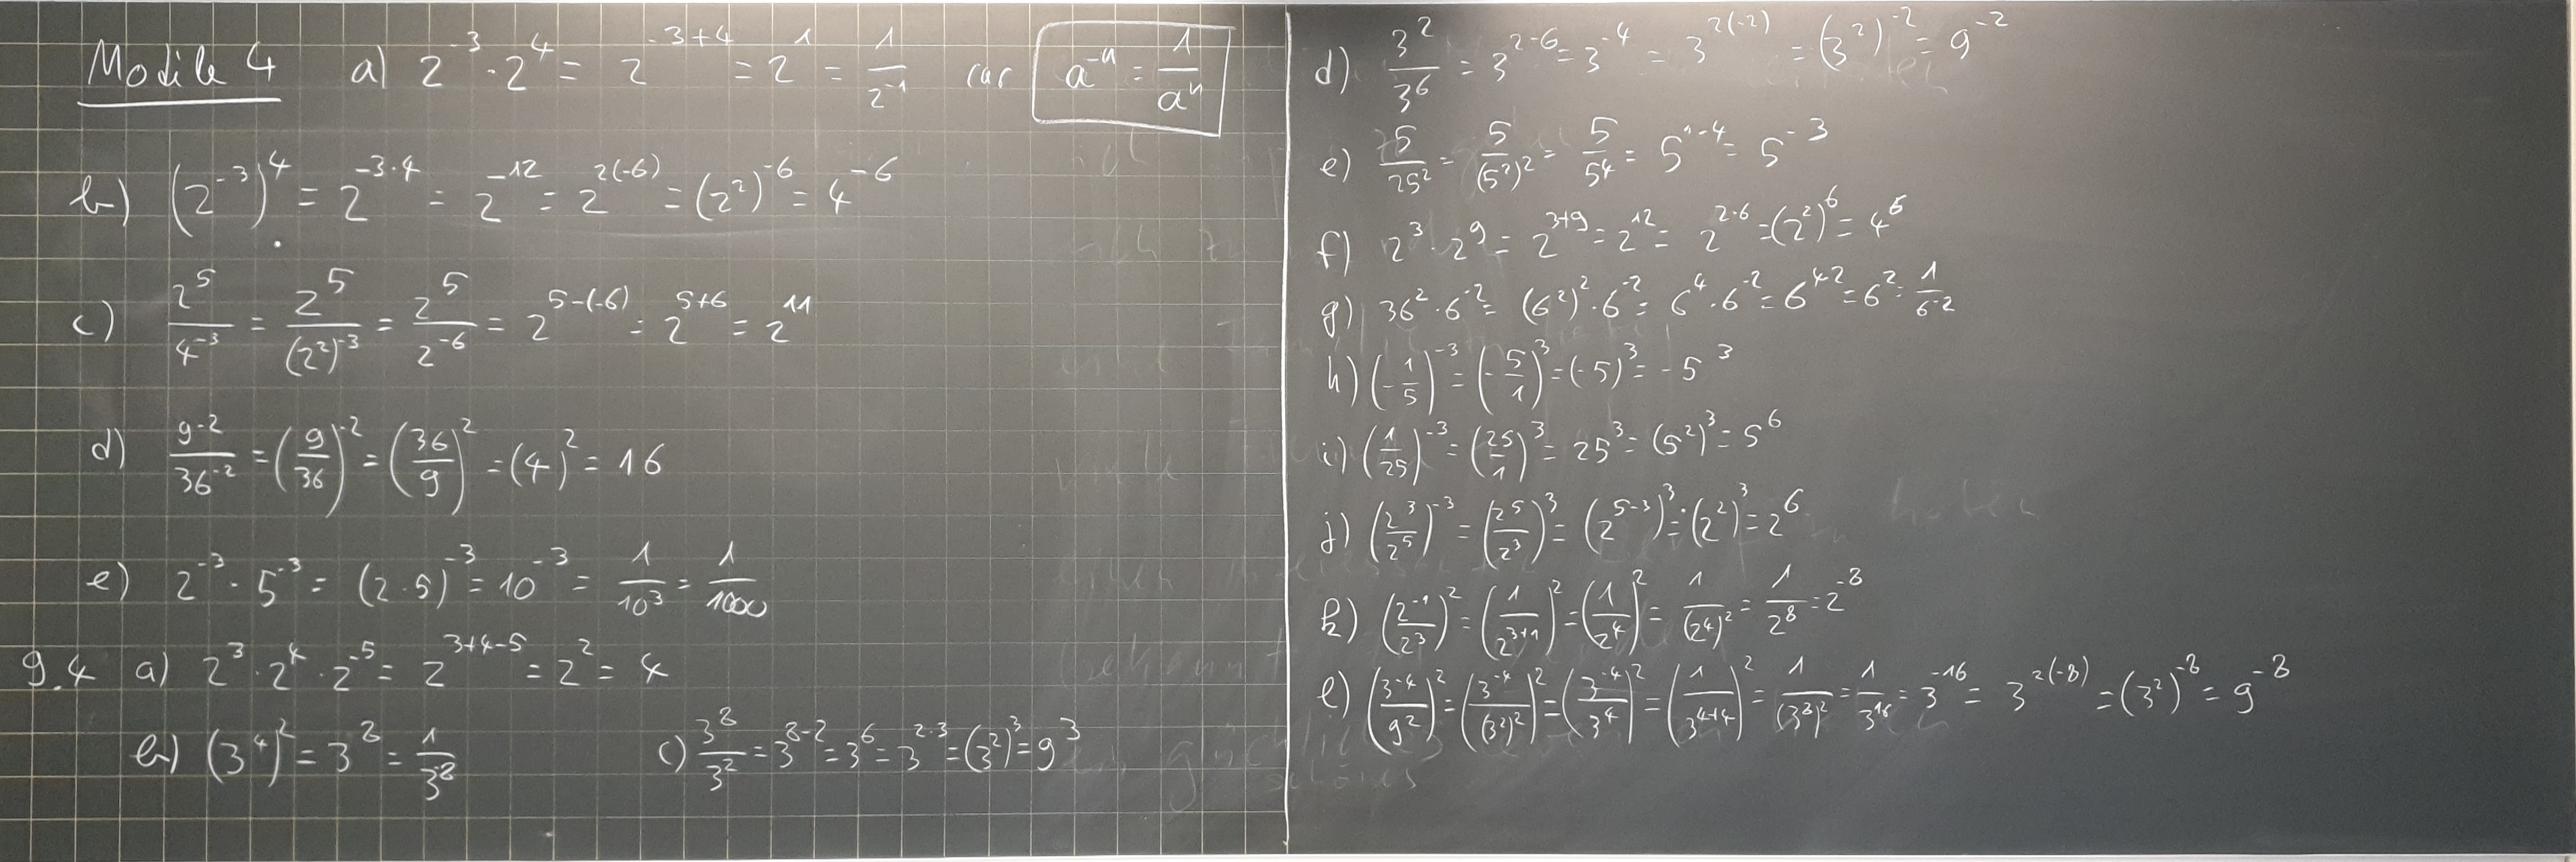 Modile 4 a) 2^-3 · 2^4 = 2^-3+4 = 2^1 = 1/2^-1 car a^-n = 1/a^n
b) (2^-3)^4 = 2^-3·4 = 2^-12 = 2^2(-6) = (2^2)^-6 = 4^-6
c) 2^5/4^-3 = 2^5/(2^2)^-3 = 2^5/2^-6 = 2^5-(-6) = 2^5+6 = 2^11
d) 9^-2/36^-2 = (9/36)^-2 = (36/9)^2 = (4)^2 = 16
e) 2^-3 · 5^-3 = (2·5)^-3 = 10^-3 = 1/10^3 = 1/1000
9.4 a) 2^3 · 2^4 · 2^-5 = 2^3+4-5 = 2^2 = 4
b) (3^4)^2 = 3^8 = 1/3^-8 c) 3^8/3^2 = 3^8-2 = 3^6 = 3^2·3 = (3^2)^3 = 9^3
d) 3^2/3^6 = 3^2-6 = 3^-4 = 3^2(-2) = (3^2)^-2 = 9^-2
e) 5/25^2 = 5/(5^2)^2 = 5/5^4 = 5^1-4 = 5^-3
f) 2^3 · 2^9 = 2^3+9 = 2^12 = 2^2·6 = (2^2)^6 = 4^6
g) 36^2 · 6^-2 = (6^2)^2 · 6^-2 = 6^4 · 6^-2 = 6^4-2 = 6^2 = 1/6^-2
h) (-1/5)^-3 = (-5/1)^3 = (-5)^3 = -5^3
i) (1/25)^-3 = (25/1)^3 = 25^3 = (5^2)^3 = 5^6
j) (2^3/2^5)^-3 = (2^5/2^3)^3 = (2^5-3)^3 = (2^2)^3 = 2^6
k) (2^-1/2^3)^2 = (1/2^3+1)^2 = (1/2^4)^2 = 1/(2^4)^2 = 1/2^8 = 2^-8
l) (3^-4/9^2)^2 = (3^-4/(3^2)^2)^2 = (3^-4/3^4)^2 = (1/3^4+4)^2 = 1/(3^8)^2 = 1/3^16 = 3^-16 = 3^2(-8) = (3^2)^-8 = 9^-8